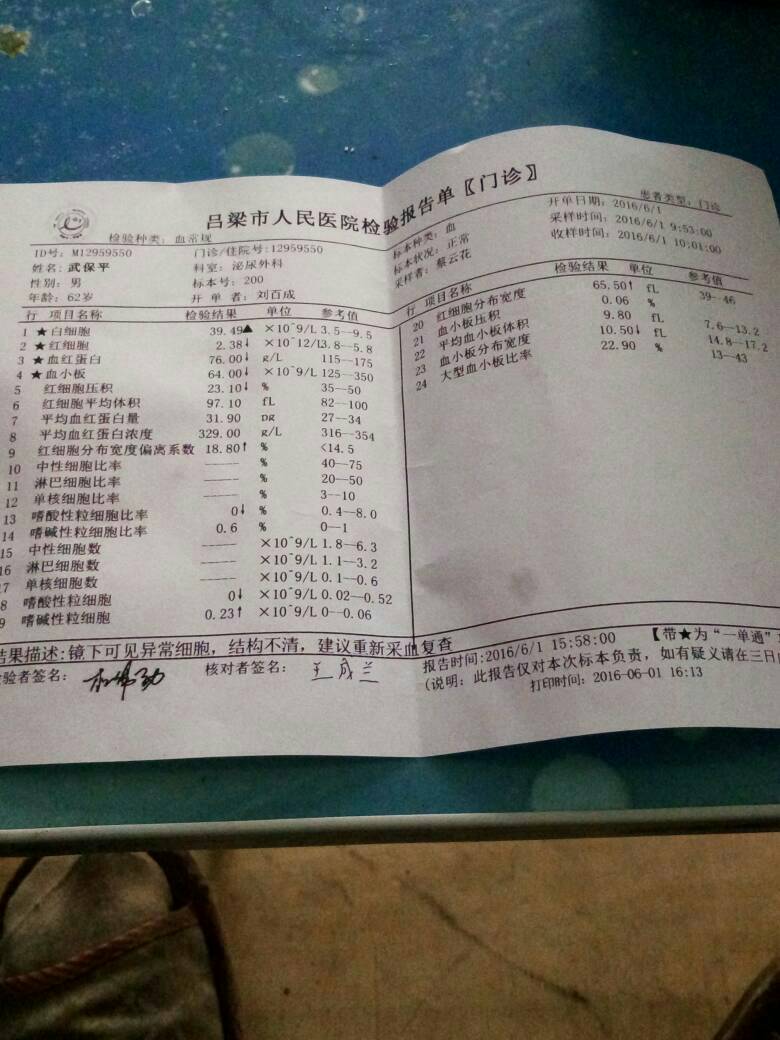 吕梁市人民医院检验报告单〖门诊〗
检验种类: 血常规
ID号: M12959550 门诊/住院号:12959550 标本种类: 血 开单日期: 2016/6/1 患者类型: 门诊
姓名: 武保平 科室: 泌尿外科 标本状况: 正常 采样时间: 2016/6/1 9:53:00
性别: 男 标本号: 200 采样者: 蔡云花 收样时间: 2016/6/1 10:01:00
年龄: 62岁 开 单 者: 刘百成
行 项目名称 检验结果 单位 参考值
1 ★白细胞 39.49▲ ×10^9/L 3.5--9.5
2 ★红细胞 2.38↓ ×10^12/L 3.8--5.8
3 ★血红蛋白 76.00↓ g/L 115--175
4 ★血小板 64.00↓ ×10^9/L 125--350
5 红细胞压积 23.10↓ % 35--50
6 红细胞平均体积 97.10 fL 82--100
7 平均血红蛋白量 31.90 pg 27--34
8 平均血红蛋白浓度 329.00 g/L 316--354
9 红细胞分布宽度偏离系数 18.80↑ % <14.5
10 中性细胞比率 ----- % 40--75
11 淋巴细胞比率 ----- % 20--50
12 单核细胞比率 ----- % 3--10
13 嗜酸性粒细胞比率 0↓ % 0.4--8.0
14 嗜碱性粒细胞比率 0.6 % 0--1
15 中性细胞数 ----- ×10^9/L 1.8--6.3
16 淋巴细胞数 ----- ×10^9/L 1.1--3.2
7 单核细胞数 ----- ×10^9/L 0.1--0.6
8 嗜酸性粒细胞 0↓ ×10^9/L 0.02--0.52
9 嗜碱性粒细胞 0.23↑ ×10^9/L 0--0.06
行 项目名称 检验结果 单位 参考值
20 红细胞分布宽度 65.50↑ fL 39--46
21 血小板压积 0.06 %
22 平均血小板体积 9.80 fL 7.6--13.2
23 血小板分布宽度 10.50↓ fL 14.8--17.2
24 大型血小板比率 22.90 % 13--43
结果描述:镜下可见异常细胞，结构不清，建议重新采血复查
验者签名: 核对者签名: 王成兰
报告时间:2016/6/1 15:58:00 【带★为“一单通”
(说明: 此报告仅对本次标本负责，如有疑义请在三日
打印时间: 2016-06-01 16:13